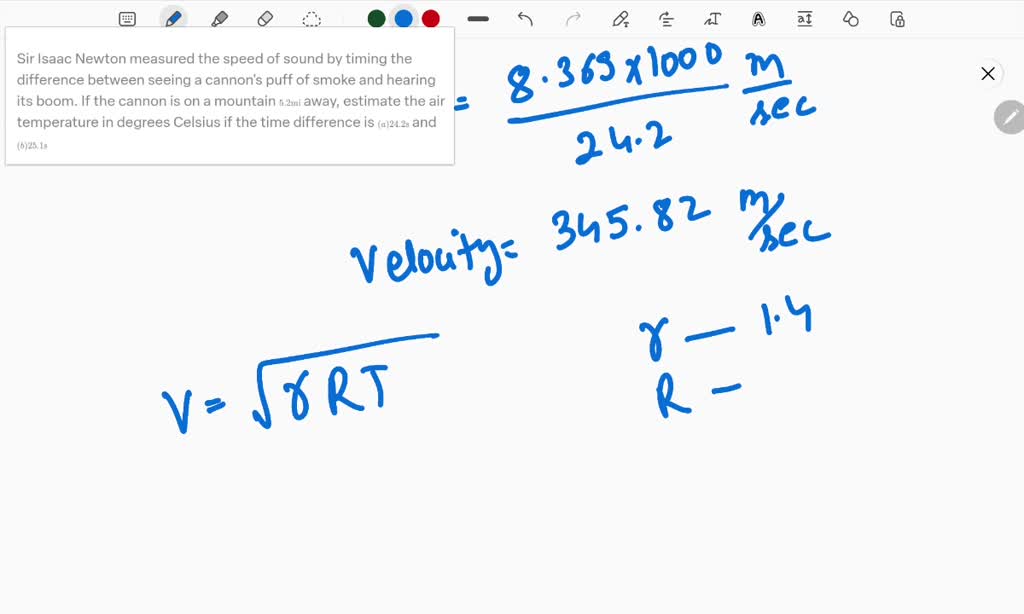 Sir Isaac Newton measured the speed of sound by timing the
difference between seeing a cannon's puff of smoke and hearing
its boom. If the cannon is on a mountain 5.2mi away, estimate the air
temperature in degrees Celsius if the time difference is (a)24.2s and
(b)25.1s
= 8.369x1000 m
24.2 sec
Velocity= 345.82 m/sec
γ — 1.4
V= √γRT R —